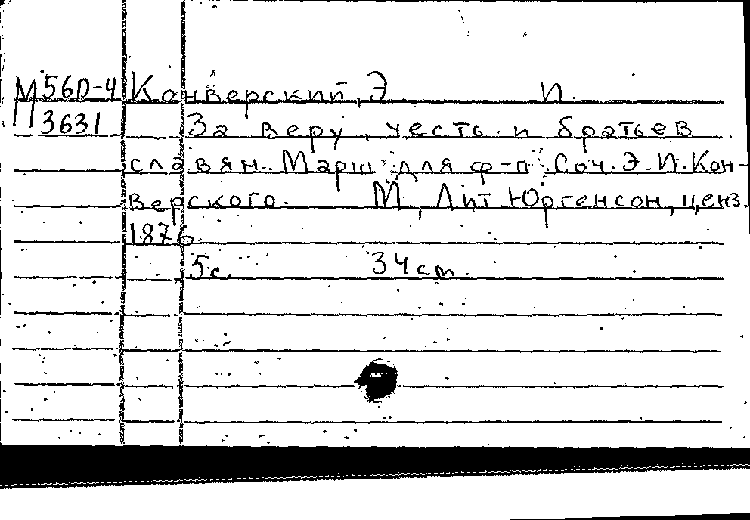 М 56D-4 Конверский, Э И.
3631 За веру, честь и братьев
славян. Марш для ф-п. Соч. Э. И. Кон-
верского. М., Лит. Юргенсон, ценз.
1876.
5с. 34 cm.